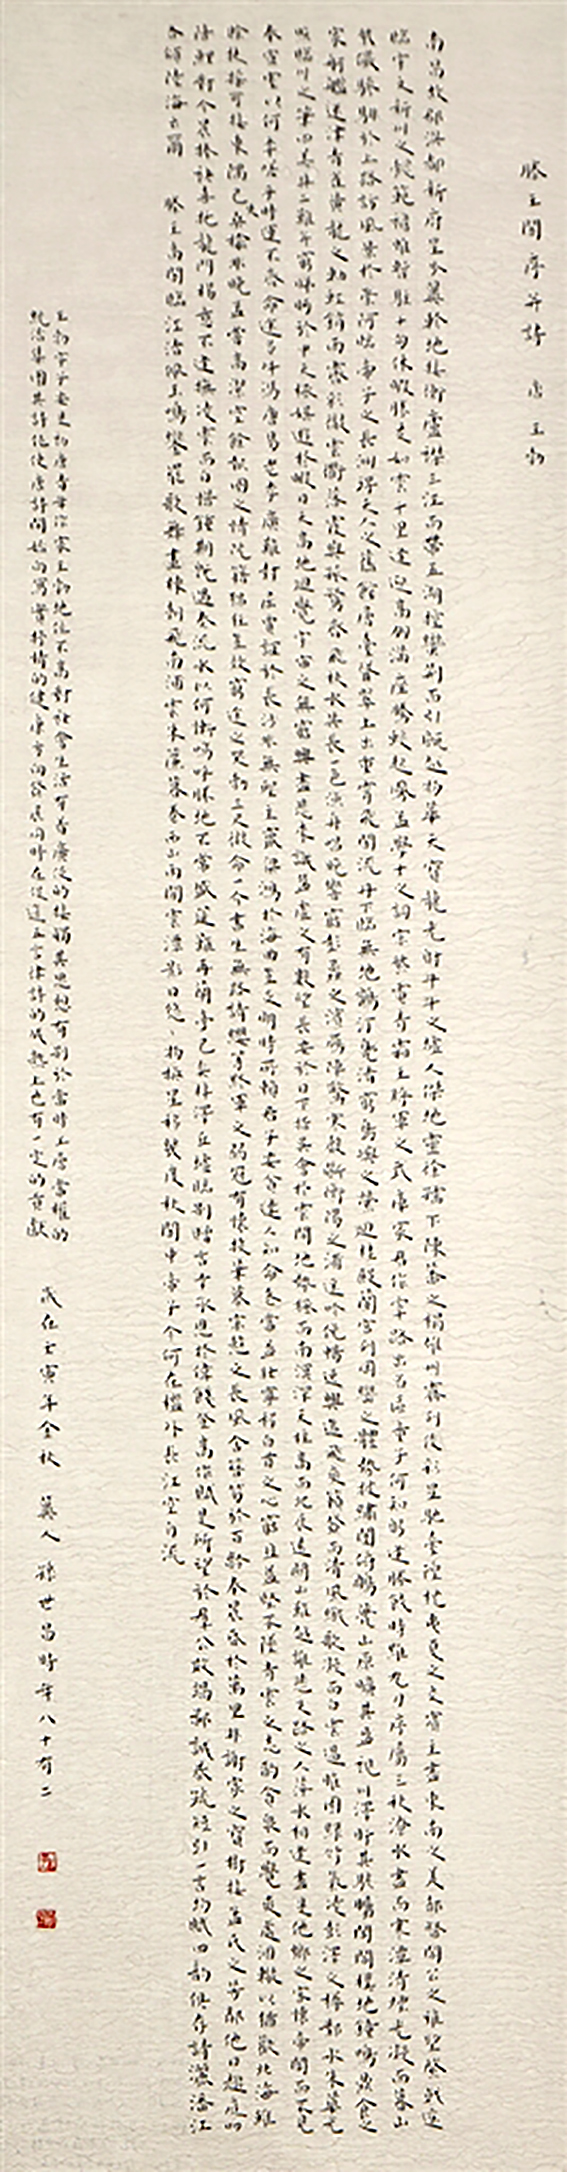 滕王閣序并詩　唐王勃
南昌故郡洪都新府星分翼軫地接衡廬襟三江而帶五湖控蠻荊而引甌越物華天寶龍光射牛斗之墟人傑地靈徐孺下陳蕃之榻雄州霧列俊彩星馳臺隍枕夷夏之交賓主盡東南之美都督閻公之雅望棨戟遙
臨宇文新州之懿範襜帷暫駐十旬休暇勝友如雲千里逢迎高朋滿座騰蛟起鳳孟學士之詞宗紫電青霜王將軍之武庫家君作宰路出名區童子何知躬逢勝餞時維九月序屬三秋潦水盡而寒潭清煙光凝而暮山
紫儼驂騑於上路訪風景於崇阿臨帝子之長洲得天人之舊館層臺聳翠上出重霄飛閣流丹下臨無地鶴汀鳧渚窮島嶼之縈迴桂殿蘭宮列岡巒之體勢披繡闥俯雕甍山原曠其盈視川澤盱其駭矚閭閻撲地鐘鳴鼎食之
家舸艦迷津青雀黃龍之軸虹銷雨霽彩徹雲衢落霞與孤鶩齊飛秋水共長天一色漁舟唱晚響窮彭蠡之濱雁陣驚寒聲斷衡陽之浦遙吟俯暢逸興遄飛爽籟發而清風生纖歌凝而白雲遏睢園綠竹氣凌彭澤之樽鄴水朱華光
照臨川之筆四美具二難并窮睇眄於中天極娛遊於暇日天高地迥覺宇宙之無窮興盡悲來識盈虛之有數望長安於日下指吳會於雲間地勢極而南溟深天柱高而北辰遠關山難越誰悲失路之人萍水相逢盡是他鄉之客懷帝閽而不見
奉宣室以何年嗟乎時運不齊命途多舛馮唐易老李廣難封屈賈誼於長沙非無聖主竄梁鴻於海曲豈乏明時所賴君子安貧達人知命老當益壯寧移白首之心窮且益堅不墜青雲之志酌貪泉而覺爽處涸轍以猶歡北海雖
賒扶搖可接東隅已桑榆非晚孟嘗高潔空餘報國之情阮籍猖狂豈效窮途之哭勃三尺微命一介書生無路請纓等終軍之弱冠有懷投筆慕宗愨之長風舍簪笏於百齡奉晨昏於萬里非謝家之寶樹接孟氏之芳鄰他日趨庭叨
陪鯉對今晨捧袂喜托龍門楊意不逢撫凌雲而自惜鍾期既遇奏流水以何慚嗚呼勝地不常盛筵難再蘭亭已矣梓澤丘墟臨別贈言幸承恩於偉餞登高作賦是所望於群公敢竭鄙誠恭疏短引一言均賦四韻俱成請灑潘江
各傾陸海云爾　滕王高閣臨江渚佩玉鳴鑾罷歌舞畫棟朝飛南浦雲朱簾暮卷西山雨閒雲潭影日悠、物換星移幾度秋閣中帝子今何在檻外長江空自流
王勃字子安是初唐青年作家王勃地位不高對社會生活有着廣泛的接觸其思想有別於當時上層當權的
統治集團其詩作使唐詩開始向寫實抒情的健康方向發展同時在促進五言律詩的成熟上也有一定的貢獻
歲在壬寅年金秋　冀人　孫世昌時年八十有二